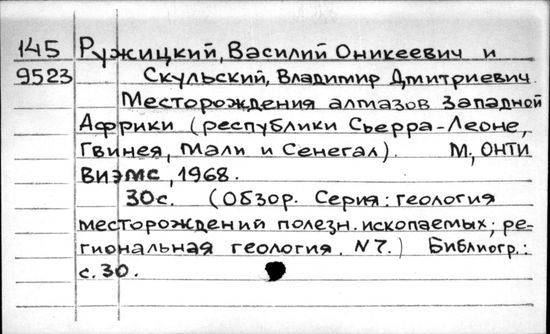 145 Ружицкий, Василий Оникеевич и
9523 Скульский, Владимир Дмитриевич.
Месторождения алмазов Западной
Африки (республики Сьерра-Леоне,
Гвинея, Мали и Сенегал). М, ОНТИ
ВИЭМС, 1968.
30с. (Обзор. Серия: геология
месторождений полезн. ископаемых; ре-
гиональная геология. N7.) Библиогр.:
с. 30.